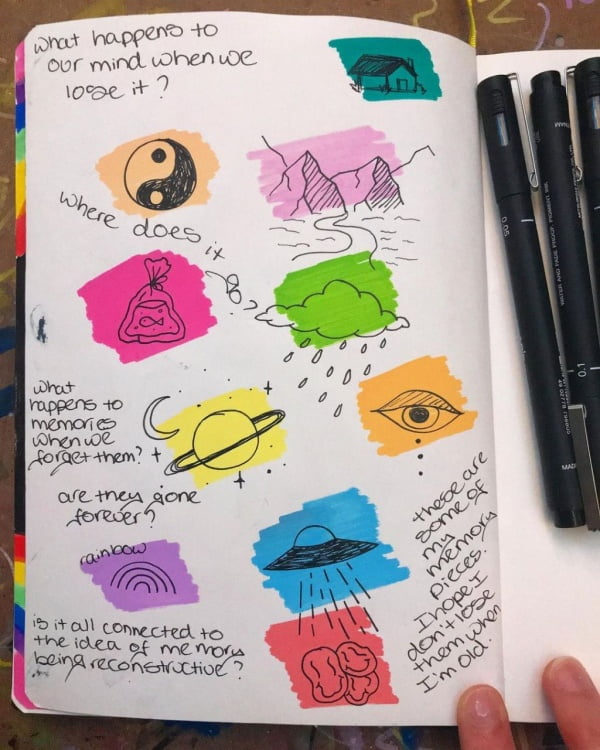 what happens to
our mind when we
lose it?
where does it
go?
what
happens to
memories
when we
forget them?
are they gone
forever?
rainbow
is it all connected to
the idea of memory
being reconstructive?
these are
some of
my
memory
pieces.
I hope I
don't lose
them when
I'm old.
0.05
0.1
WATER AND FADE PROOF, PIGMENT INK
MADE